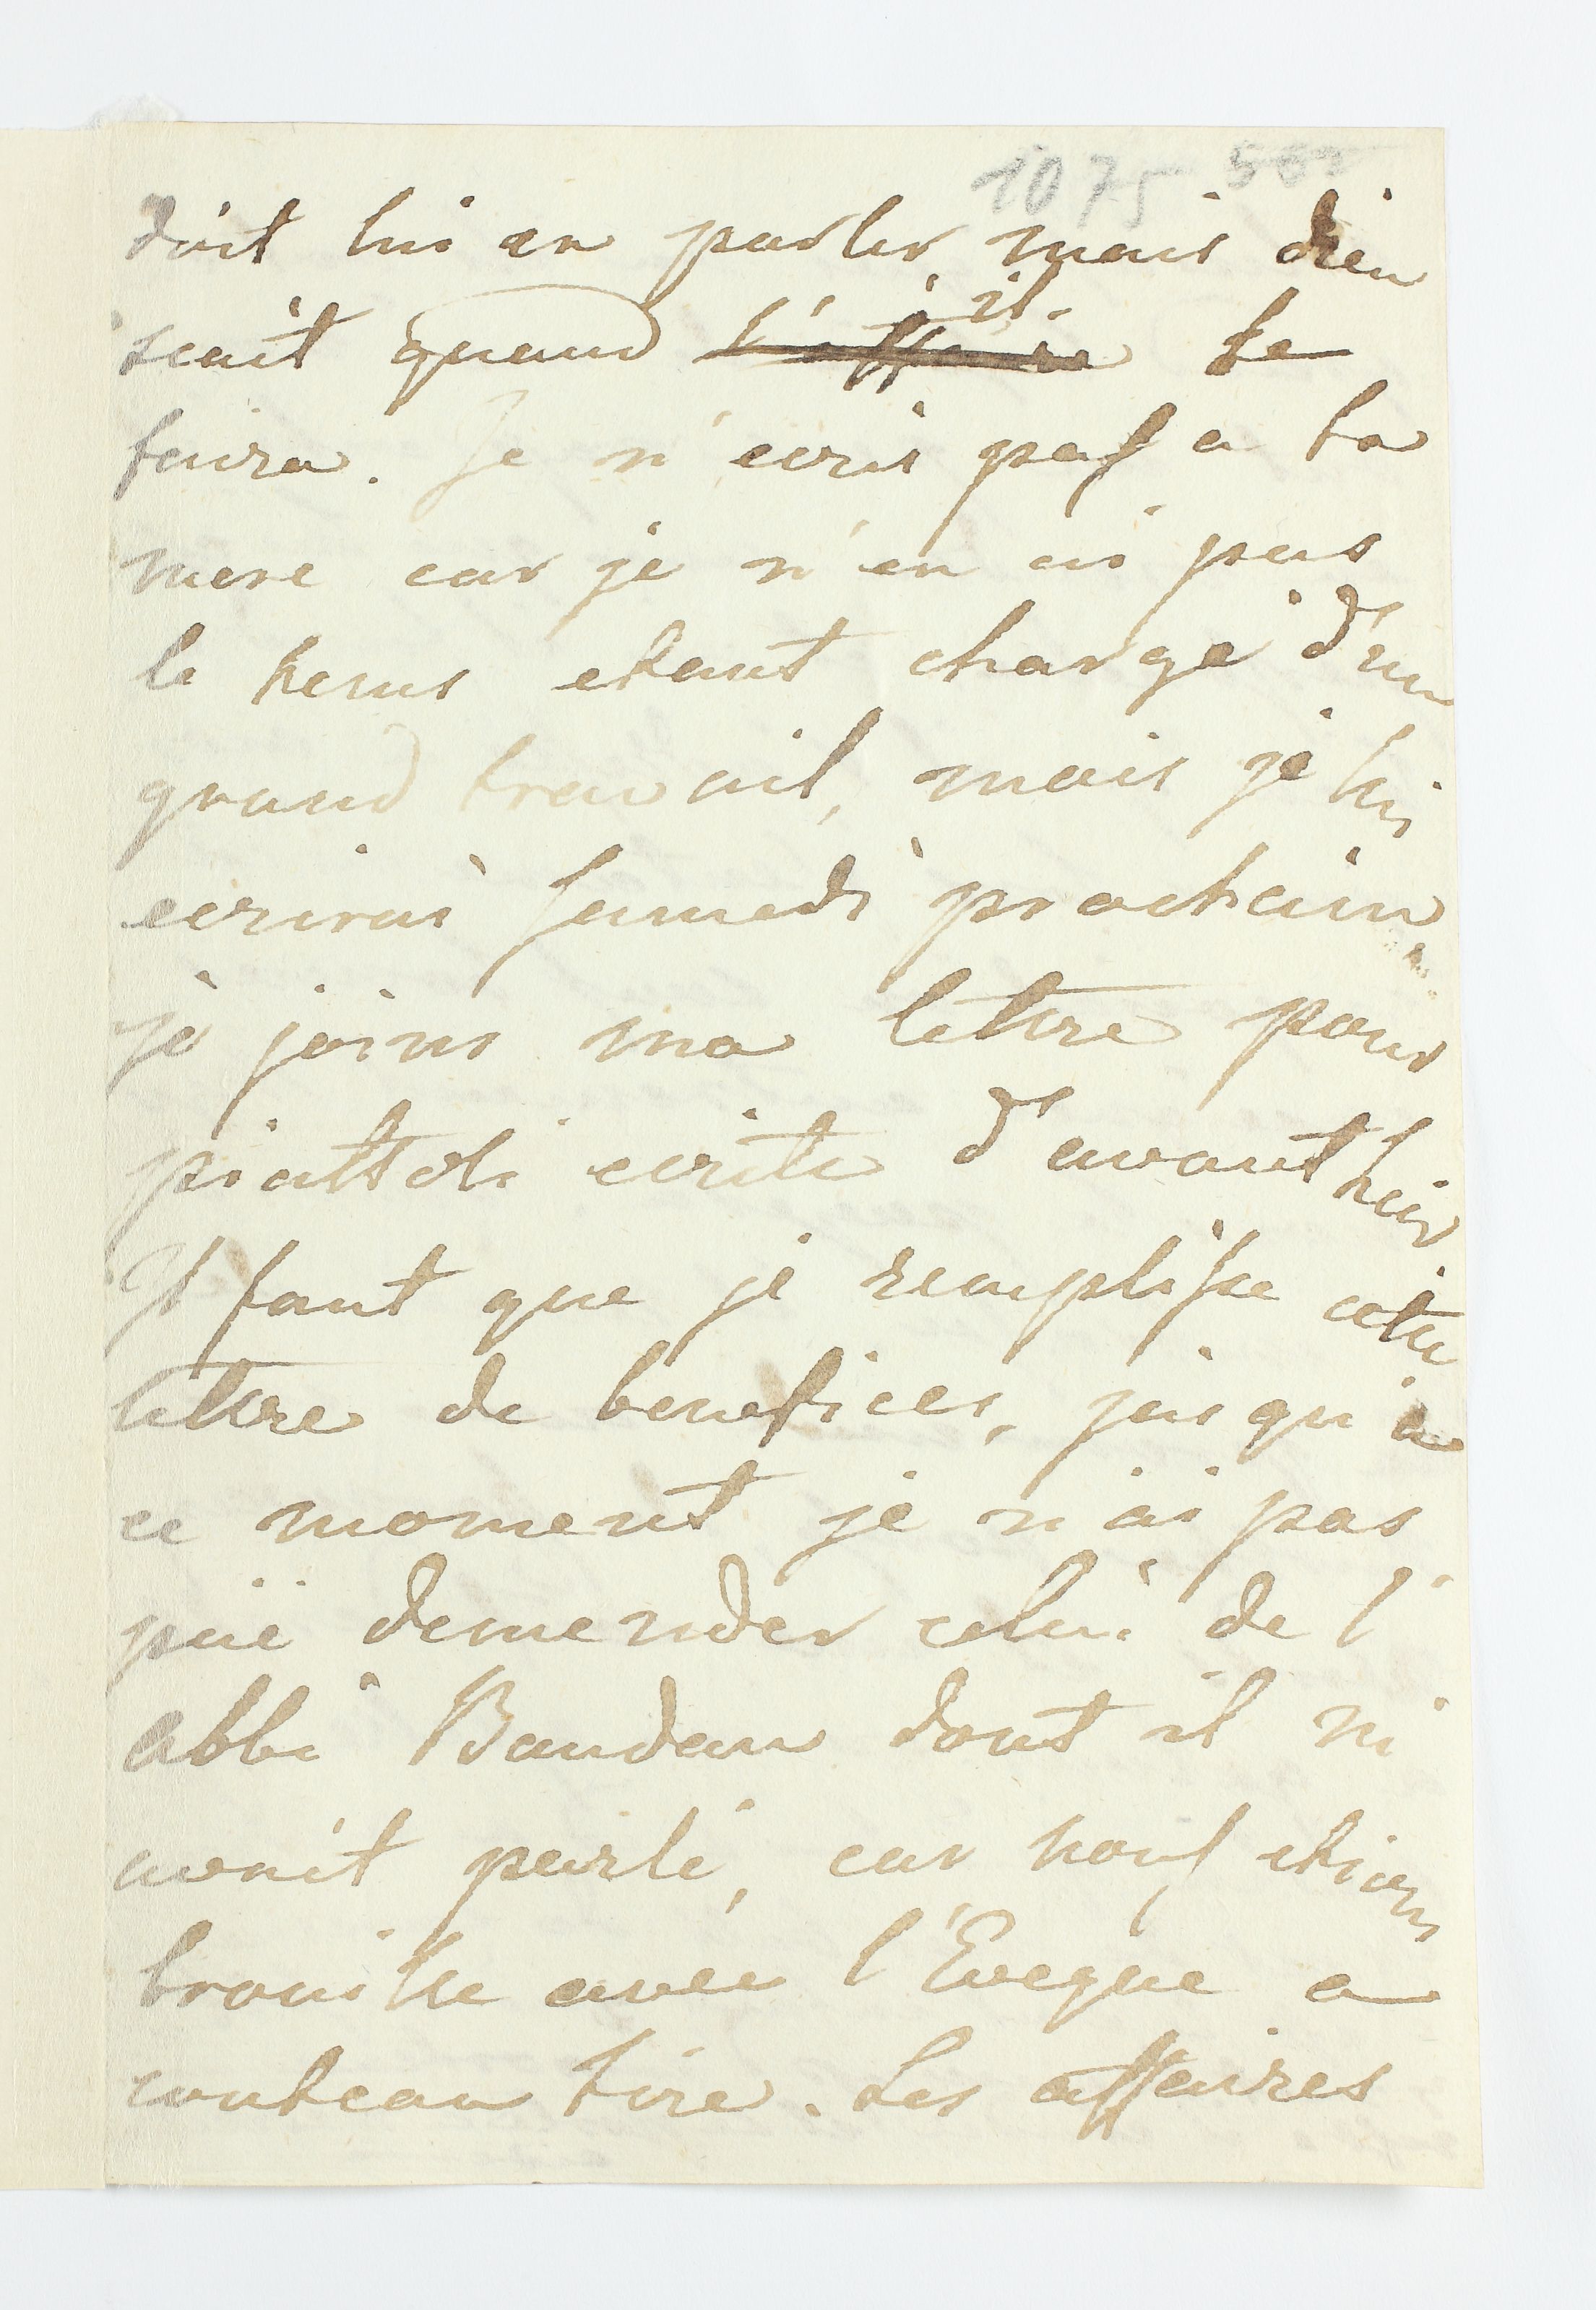 1075
doit lui en parler, mais dieu
scait quand l'affaire il le
faira. Je n'ecris pas a ta
mere car je n'en ai pas
le tems etant charge d'un
grand travail, mais je lui
ecrirai samedi prochain,
je joins ma lettre pour
piattoli ecrite d'avant hier
Il faut que je remplisse cette
lettre de benefices, jusqu'a
ce moment je n'ai pas
pûe demender celui de l'
abbé Baudau dont il m'
avoit parlé, car nous etions
brouille avec l'Eveque a
couteau tire. Les affaires